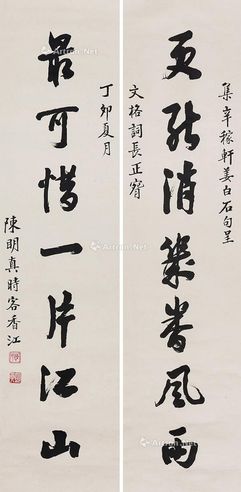 集辛稼軒姜白石句呈
更能消幾番風雨
文格詞長正
丁卯夏月
最可惜一片江山
陳明真時客香江